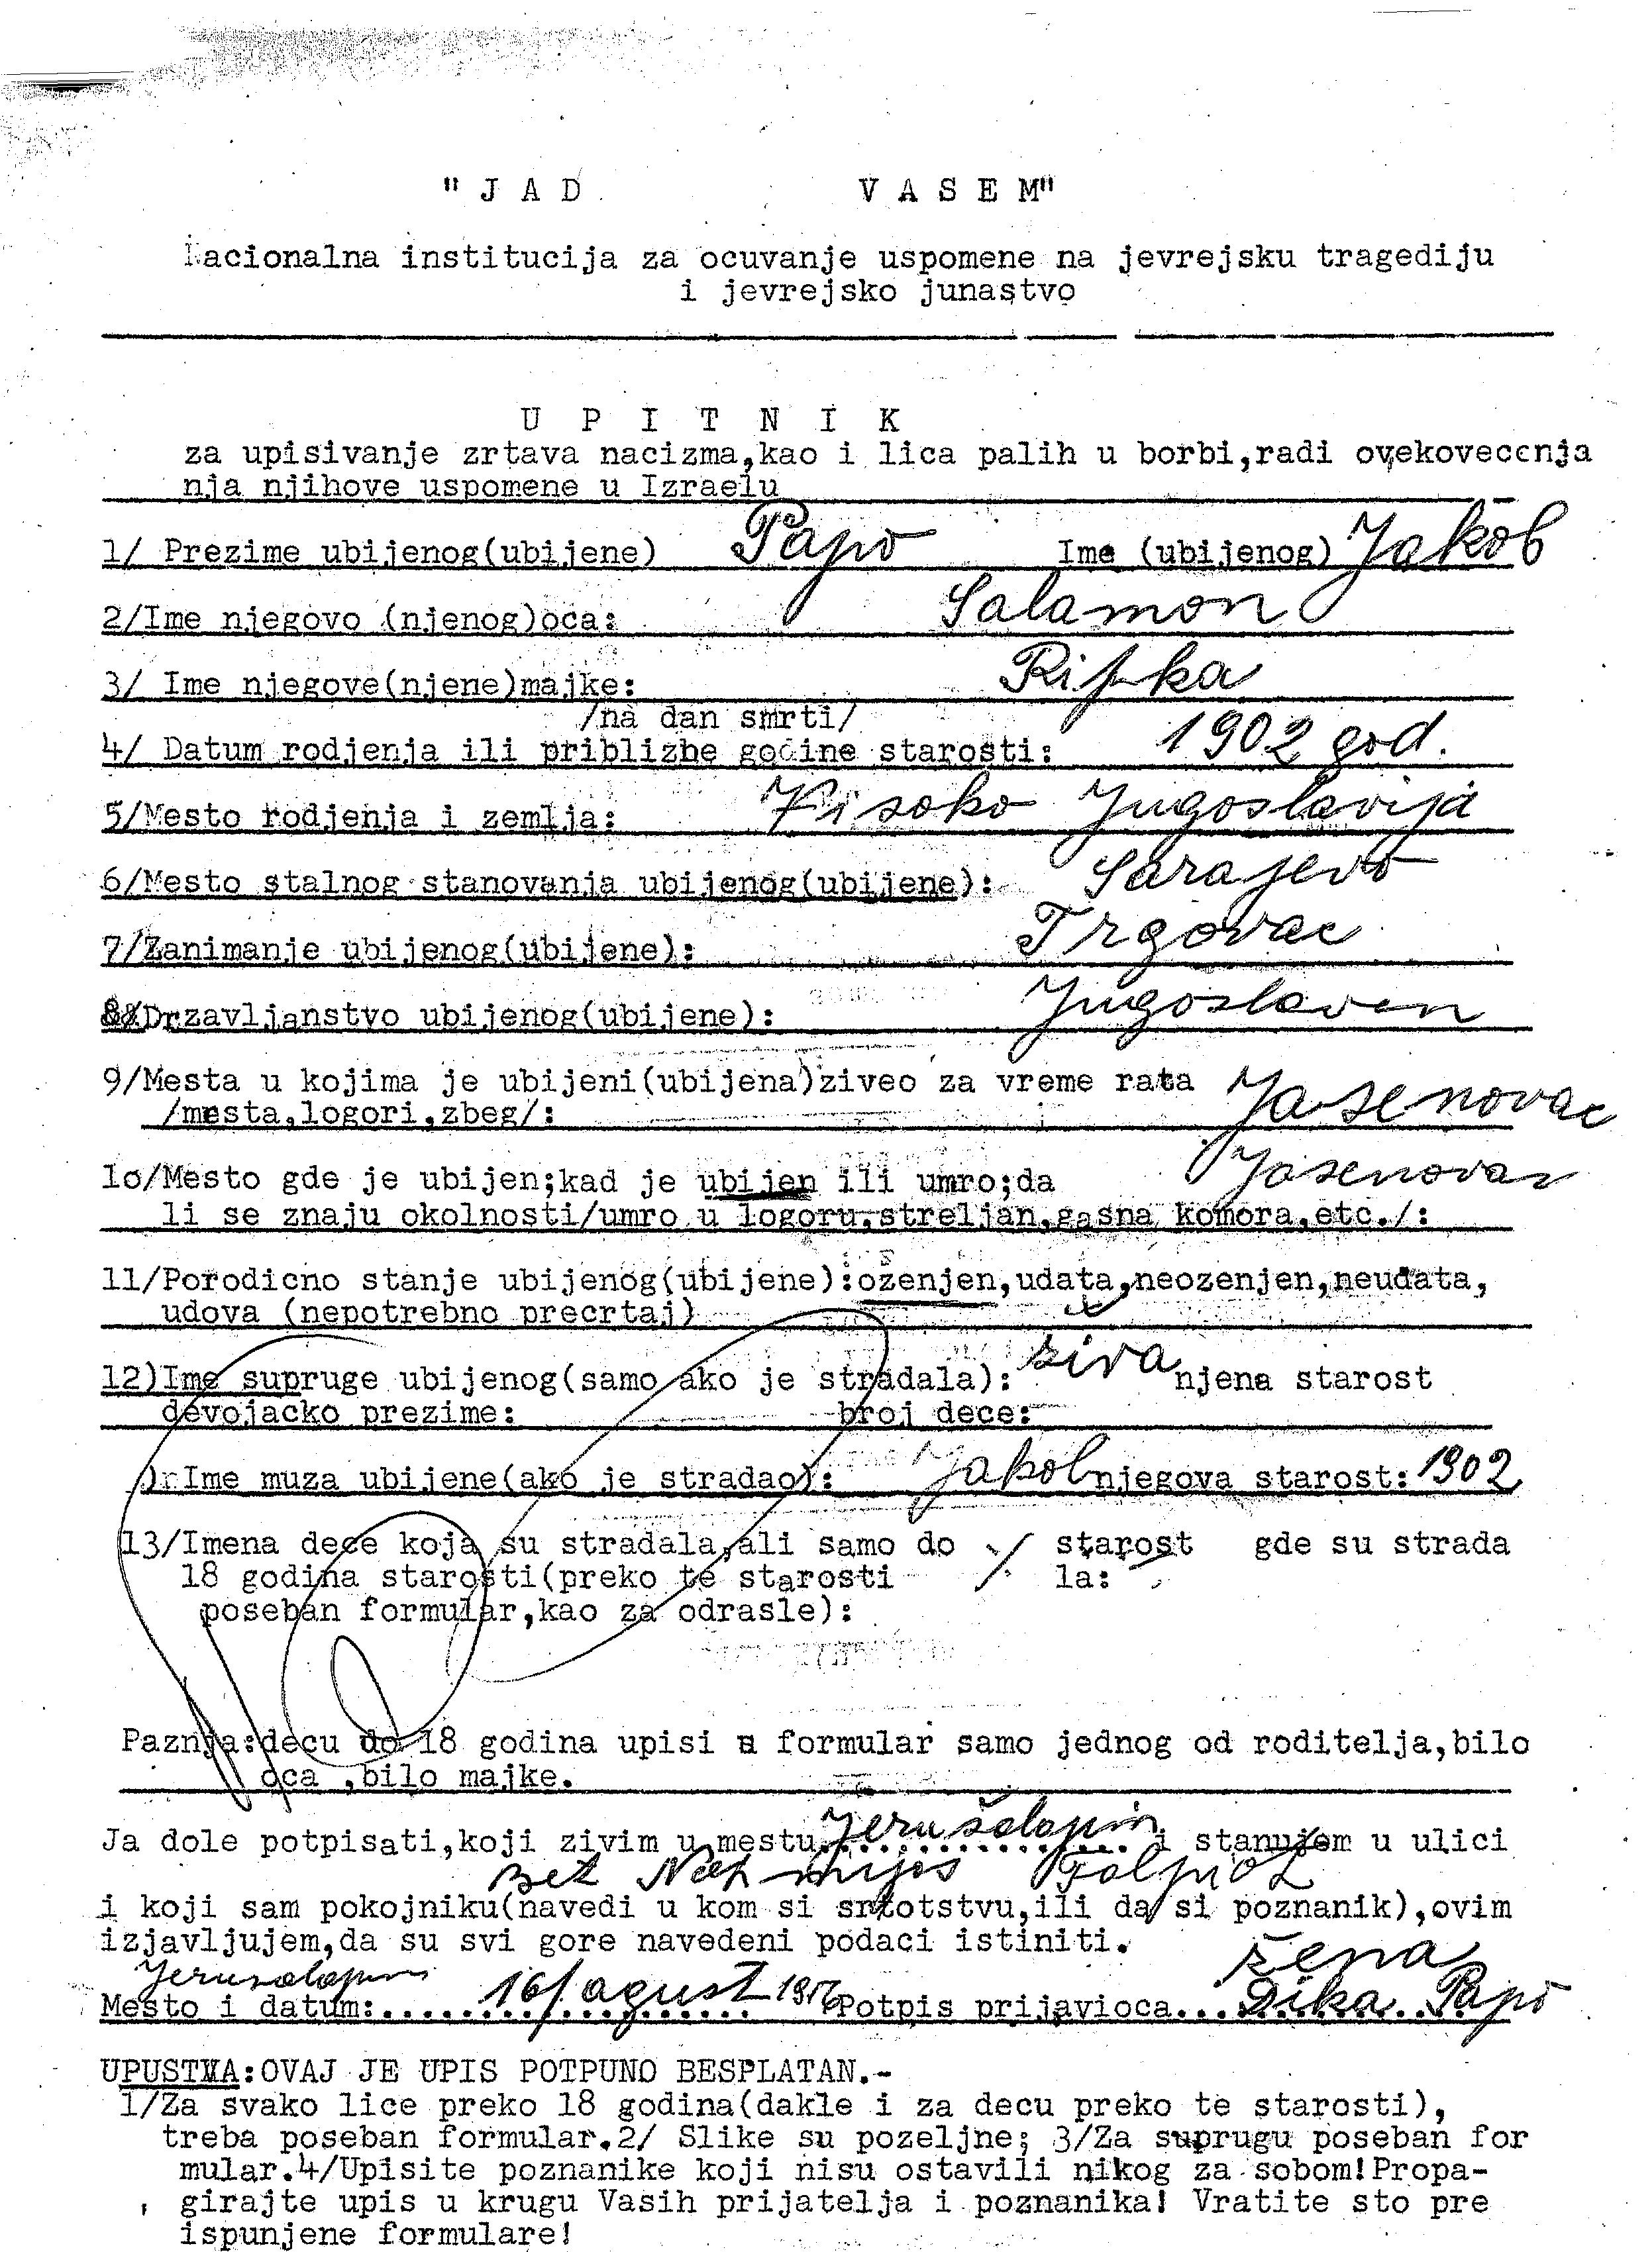 "JAD VASEM"
Nacionalna institucija za ocuvanje uspomene na jevrejsku tragediju
i jevrejsko junastvo
U P I T N I K
za upisivanje zrtava nacizma,kao i lica palih u borbi,radi ovekovecenja
nja njihove uspomene u Izraelu
1/ Prezime ubijenog(ubijene) Papo Ime (ubijenog) Jakob
2/Ime njegovo (njenog)oca: Salamon
3/ Ime njegove(njene)majke: Rifka
/na dan smrti/
4/ Datum rodjenja ili priblizne godine starosti: 1902 god.
5/Mesto rodjenja i zemlja: Visoko Jugoslavija
6/Mesto stalnog stanovanja ubijenog(ubijene): Sarajevo
7/Zanimanje ubijenog(ubijene): Trgovac
8/Drzavljanstvo ubijenog(ubijene): Jugoslaven
9/Mesta u kojima je ubijeni(ubijena)ziveo za vreme rata Jasenovac
/mesta,logori,zbeg/:
1o/Mesto gde je ubijen;kad je ubijen ili umro;da Jasenovac
li se znaju okolnosti/umro u logoru,streljan,gasna komora,etc./:
11/Porodicno stanje ubijenog(ubijene):ozenjen,udata,neozenjen,neudata,
udova (nepotrebno precrtaj)
12)Ime supruge ubijenog(samo ako je stradala): živa njena starost
devojacko prezime: broj dece:
)Ime muza ubijene(ako je stradao): Jakob njegova starost: 1902
13/Imena dece koja su stradala,ali samo do starost gde su strada
18 godina starosti(preko te starosti la:
poseban formular,kao za odrasle):
Paznja:decu do 18 godina upisi u formular samo jednog od roditelja,bilo
oca ,bilo majke.
Ja dole potpisati,koji zivim u mestu Jerušalajim i stanujem u ulici
Bet Talpiot
i koji sam pokojniku(navedi u kom si srotstvu,ili da si poznanik),ovim
izjavljujem,da su svi gore navedeni podaci istiniti. žena
Jerusalajim
Mesto i datum: 16/agust 1956 Potpis prijavioca Dika Papo
UPUSTVA:OVAJ JE UPIS POTPUNO BESPLATAN.-
1/Za svako lice preko 18 godina(dakle i za decu preko te starosti),
treba poseban formular.2/ Slike su pozeljne; 3/Za suprugu poseban for
mular.4/Upisite poznanike koji nisu ostavili nikog za sobom!Propa-
girajte upis u krugu Vasih prijatelja i poznanika! Vratite sto pre
ispunjene formulare!